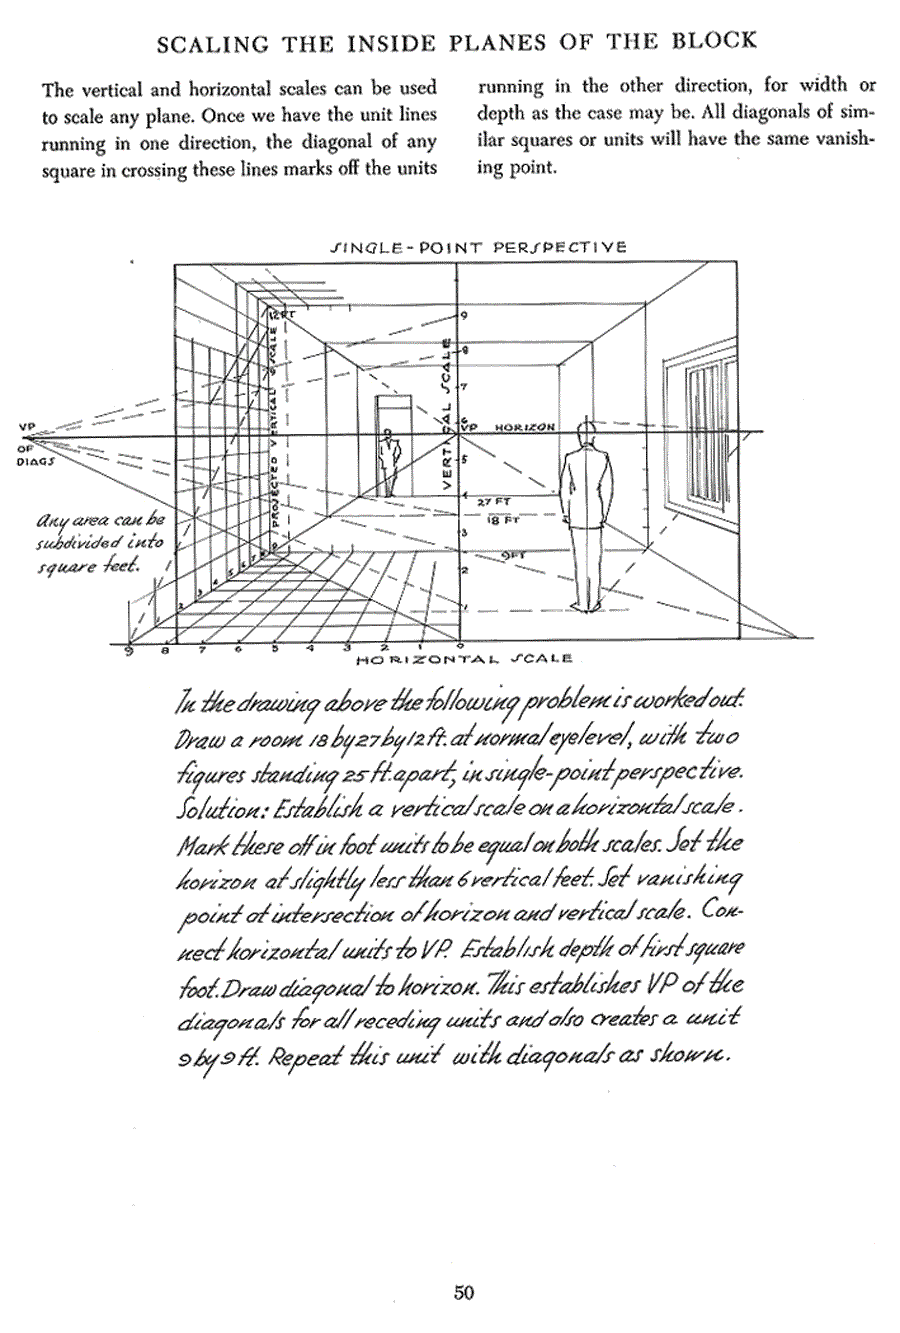 SCALING THE INSIDE PLANES OF THE BLOCK
The vertical and horizontal scales can be used
to scale any plane. Once we have the unit lines
running in one direction, the diagonal of any
square in crossing these lines marks off the units
running in the other direction, for width or
depth as the case may be. All diagonals of sim-
ilar squares or units will have the same vanish-
ing point.
SINGLE-POINT PERSPECTIVE
12 FT
9
8
7
6
5
4
3
2
1
0
VERTICAL SCALE
PROJECTED VERTICAL SCALE
VP
OF
DIAGS
VP HORIZON
27 FT
18 FT
9 FT
Any area can be
subdivided into
square feet.
9 8 7 6 5 4 3 2 1 0
HORIZONTAL SCALE
In the drawing above the following problem is worked out.
Draw a room 18 by 27 by 12 ft. at normal eye level, with two
figures standing 25 ft. apart, in single-point perspective.
Solution: Establish a vertical scale on a horizontal scale.
Mark these off in foot units to be equal on both scales. Set the
horizon at slightly less than 6 vertical feet. Set vanishing
point at intersection of horizon and vertical scale. Con-
nect horizontal units to VP. Establish depth of first square
foot. Draw diagonal to horizon. This establishes VP of the
diagonals for all receding units and also creates a unit
9 by 9 ft. Repeat this unit with diagonals as shown.
50